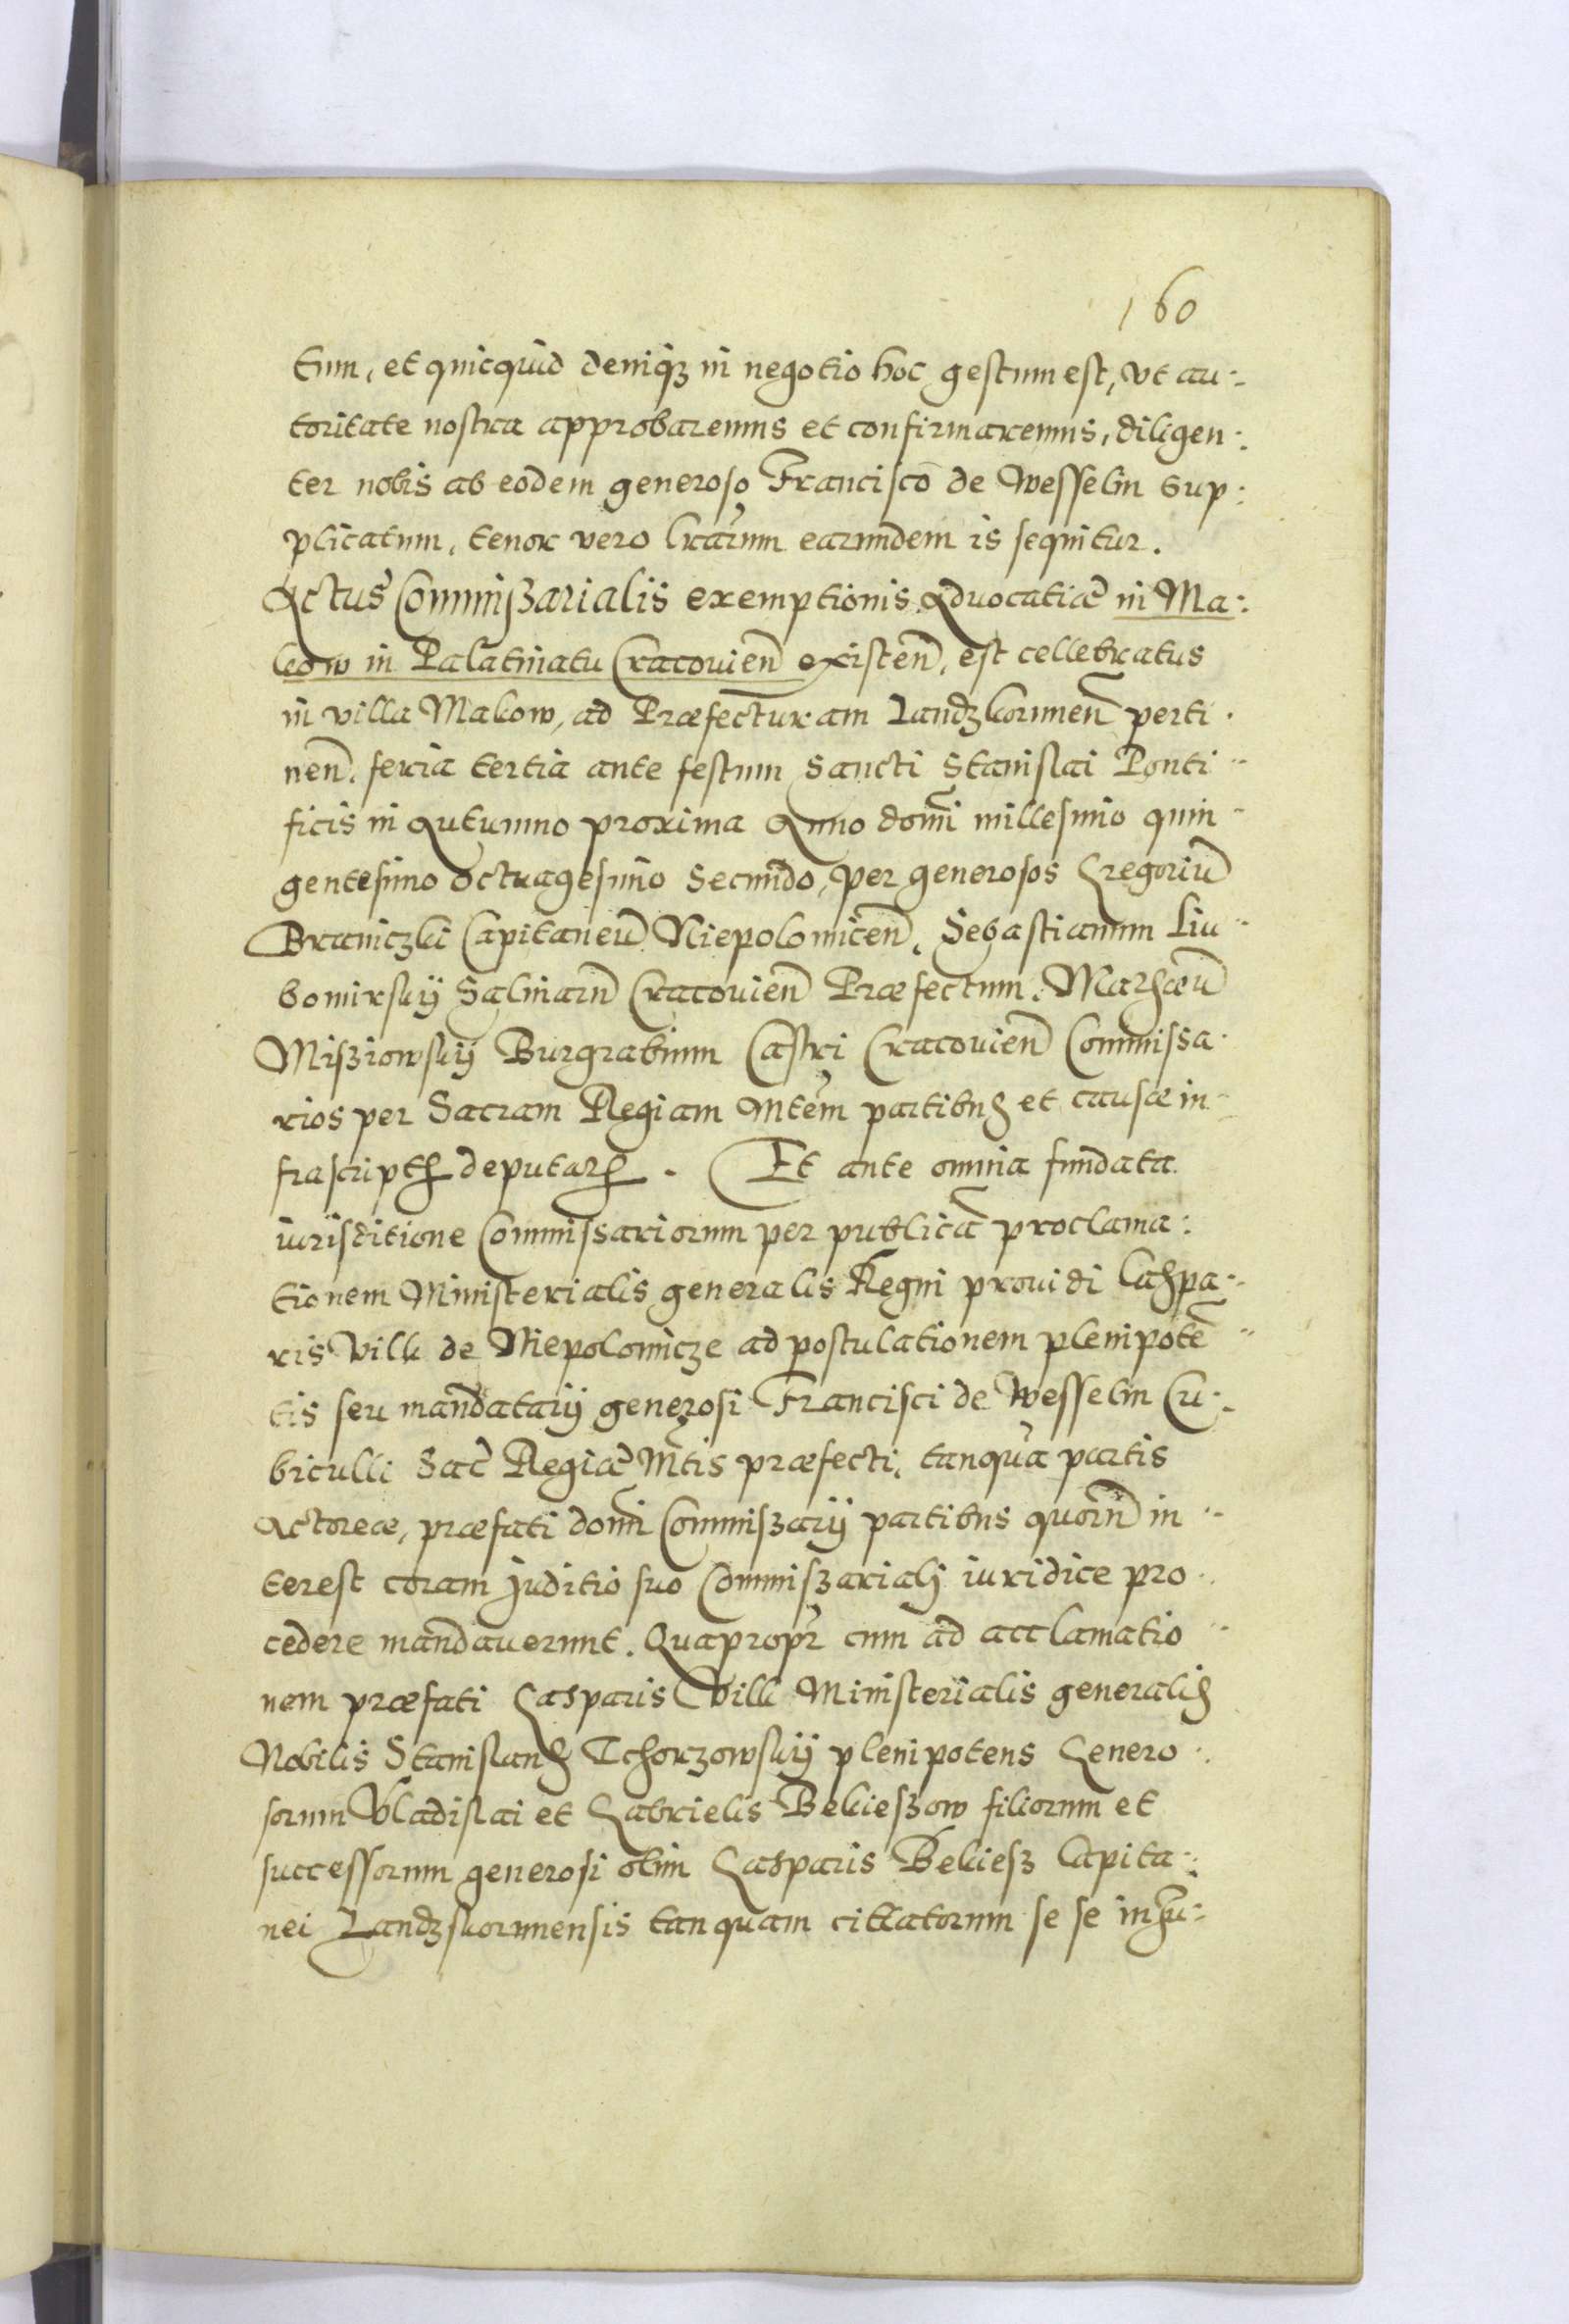 160
tum, et quicquid deniqꝫ in negotio hoc gestum est, vt au:
toritate nostra approbaremus et confirmaremus, diligen:
ter nobis ab eodem generoso Francisco de Wesselin sup:
plicatum, tenor vero lrarum earumdem is sequitur.
Actus Commiszarialis exemptionis Advocatiæ in Ma:
kow in Palatinatu Cracouień existeń, est cellebratus
in villa Makow, ad Præfecturam Landzkoruneń perti:
neń. feria tertia ante festum Sancti Stanislai Ponti:
ficis in Autumno proxima Anno domi millesimo quin:
gentesimo octuagesimo Secundo, per generosos Gregoriū
Braniczki Capitaneū Niepolomiceń, Sebastianum Liu:
bomirskÿ Salinarū Cracouień Præfectum, Mathæū
MisziowskÿBurgrabium Castri Cracouień Commissa:
rios per Sacram Regiam Mtem partibus et causæ in:
frascriptis deputatis. Et ante omnia fundata
iurisditione Commissariorum per publicā proclama:
tionem Ministerialis generalis Regni prouidi Caspa:
ris Vilk de Niepolomicze ad postulationem plenipotē:
tis seu mandatarÿ generosi Francisci de Wesselin Cu:
biculli Sac Regiæ Mtis præfecti, tanquā partis
Actoreæ, præfati domi Commiszarÿ partibus quorū in:
terest coram Juditio suo Commiszariali iuridice pro:
cedere mandauerunt. Quapropr cum ad acclamatio:
nem præfati Gasparis Vilk Ministerialis generalis
Nobilis Stanislaus TchorzowskÿPlenipotens Genero:
sorum Vladislai et Gabrielis Bekieszow filiorum et
successorum generosi olim Gasparis Bekiesz Capita:
nei Landzskorunensis tanquam cittatorum se se insu: